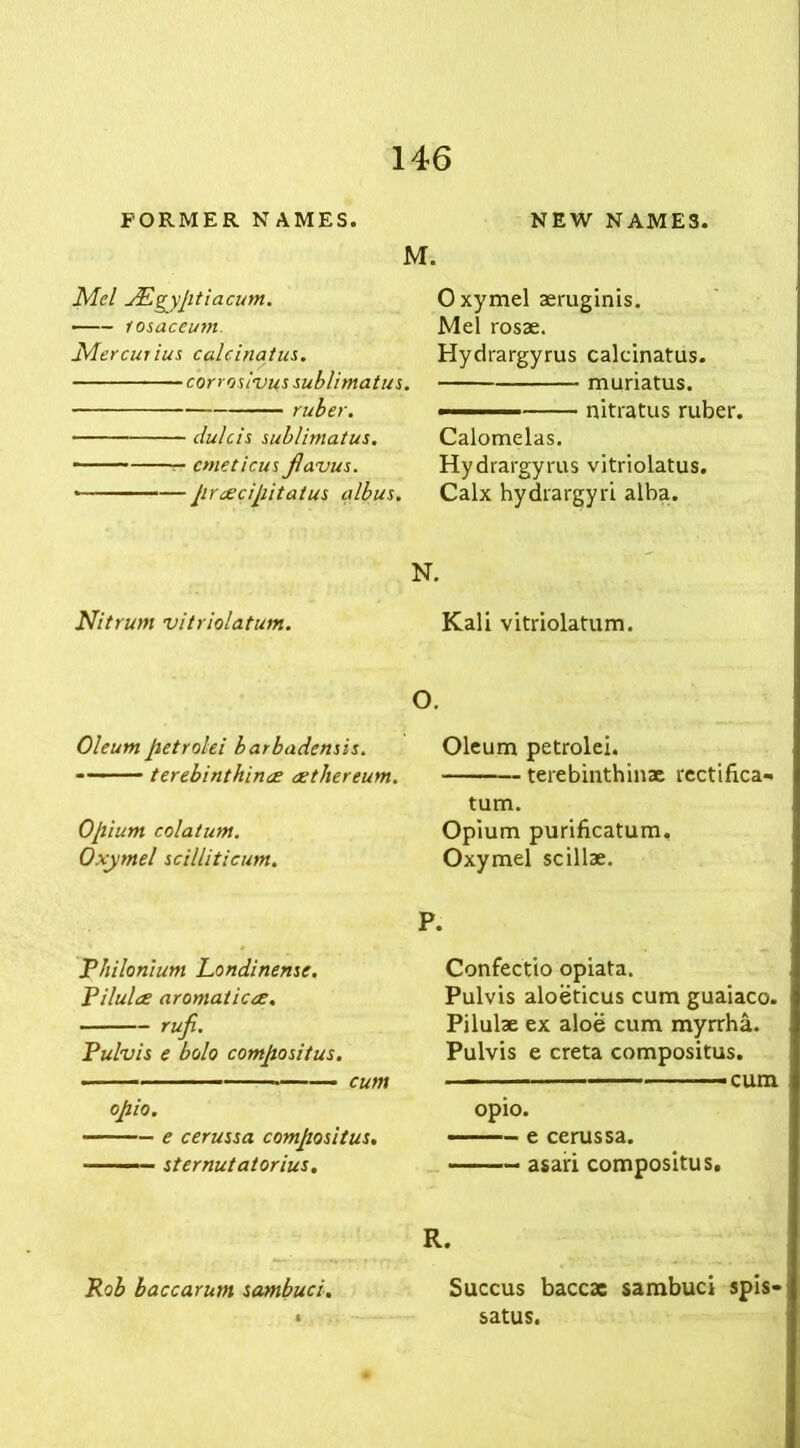 146
FORMER NAMES. NEW NAMES.
M.
Mel Ægyptiacum. Oxymel æruginis.
—— rosaceum. Mel rosæ.
Mercurius calcinatus. Hydrargyrus calcinatus.
——— corrosivus sublimatus. ——— muriatus.
——— ruber. ——— nitratus ruber.
——— dulcis sublimatus. Calomelas.
——— emeticus flavus. Hydrargyrus vitriolatus.
——— præcipitatus albus. Calx hydrargyri alba.
N.
Nitrum vitriolatum. Kali vitriolatum.
O.
Oleum petrolei barbadensis. Oleum petrolei.
——— terebinthinæ æthereum. ——— terebinthinæ rectifica-
tum.
Opium colatum. Opium purificatum.
Oxymel scilliticum. Oxymel scillæ.
P.
Philonium Londinense. Confectio opiata.
Pilulæ aromaticæ. Pulvis aloëticus cum guaiaco.
——— rufi. Pilulæ ex aloë cum myrrhâ.
Pulvis e bolo compositus. Pulvis e creta compositus.
——— cum ——— cum
opio. opio.
——— e cerussa compositus. ——— e cerussa.
——— sternutatorius. ——— asari compositus.
R.
Rob baccarum sambuci. Succus baccæ sambuci spis-
satus.